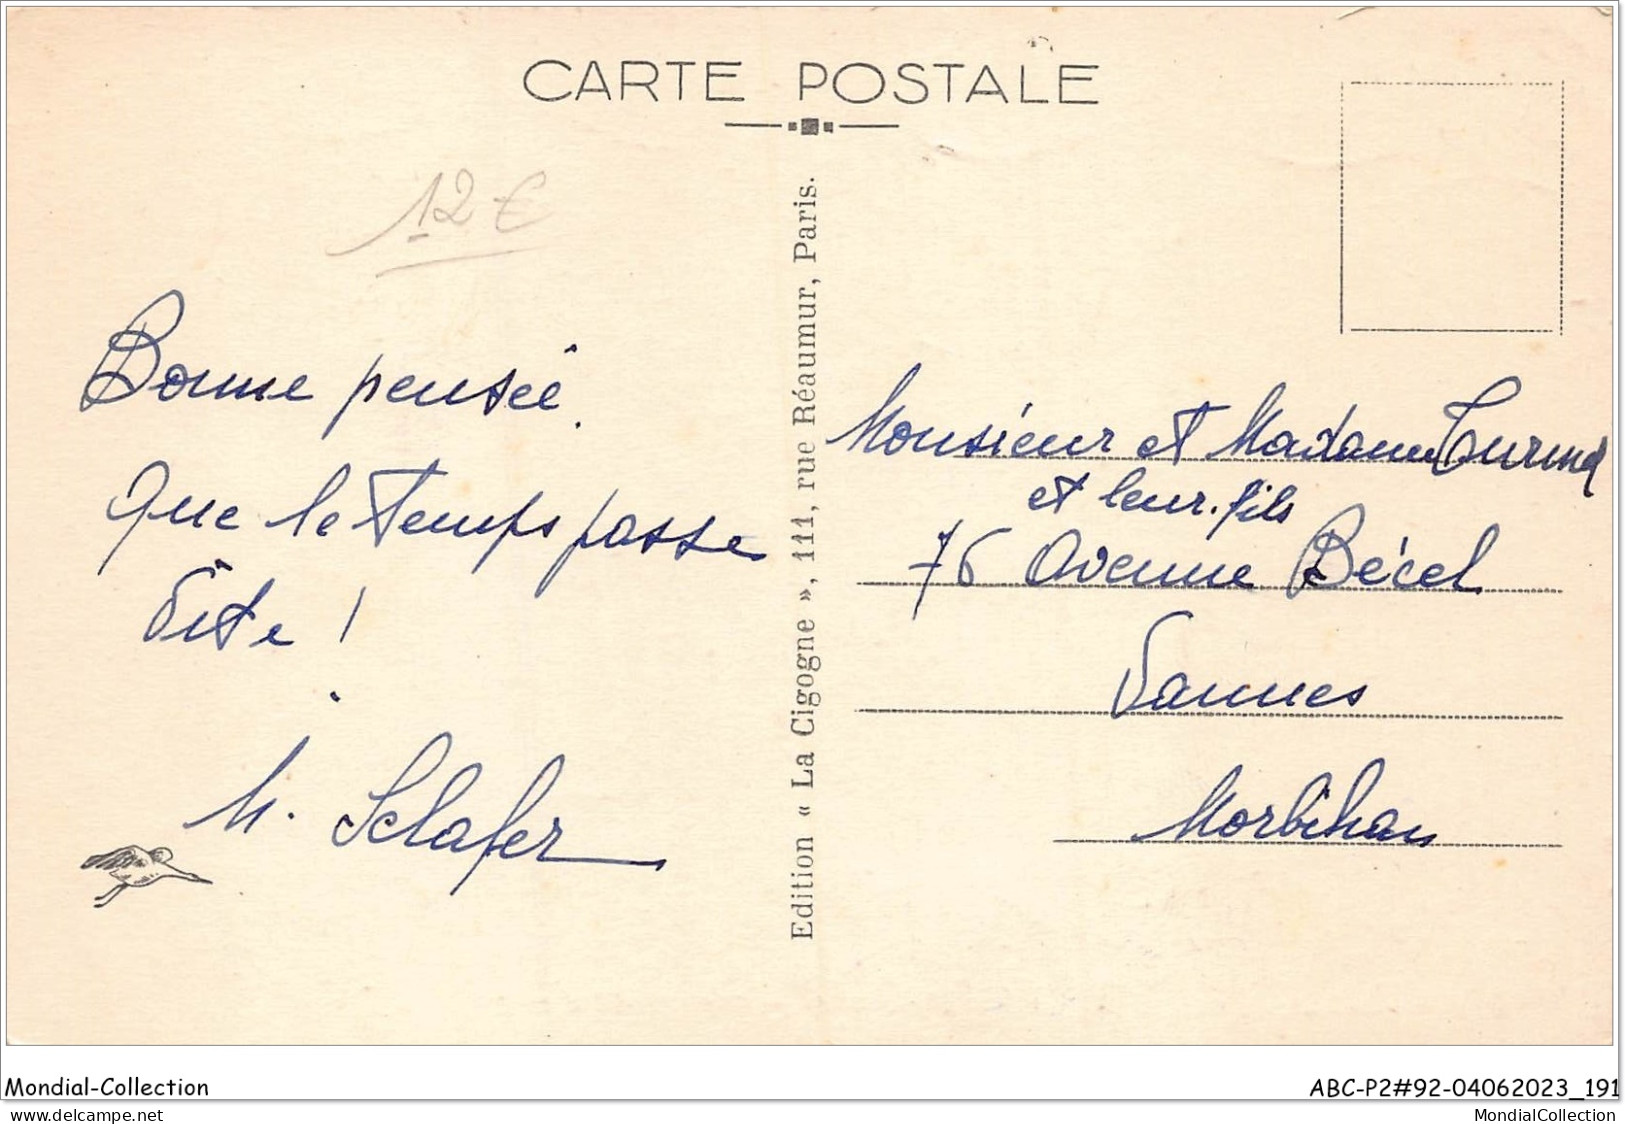 CARTE POSTALE
12 €
Bonne pensée.
Que le temps passe
vite !
M. Sclafer
Edition « La Cigogne », 111, rue Réaumur, Paris.
Monsieur et Madame
et leur fils
76 Avenue Bécel
Vannes
Morbihan
Mondial-Collection
ABC-P2#92-04062023_191
delcampe.net
MondialCollection